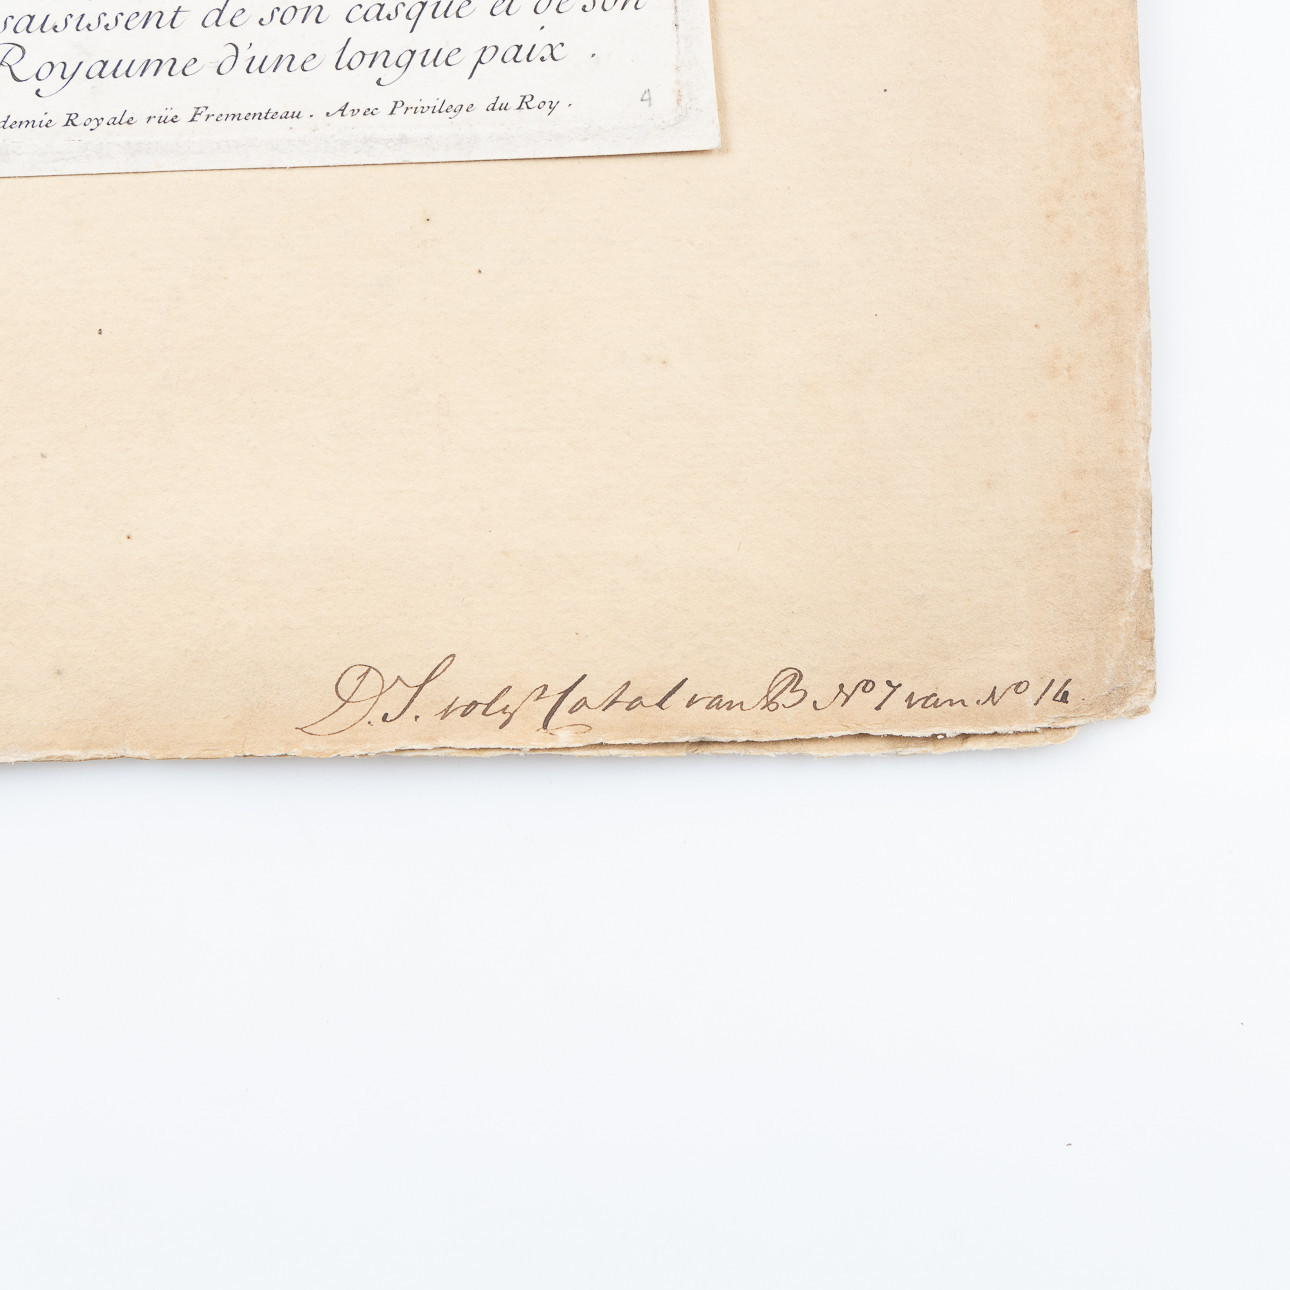 saisissent de son casque et de son
Royaume d'une longue paix .
demie Royale rüe Frementeau . Avec Privilege du Roy .
4
D. S. volgt Catal van B No 7 van No 14